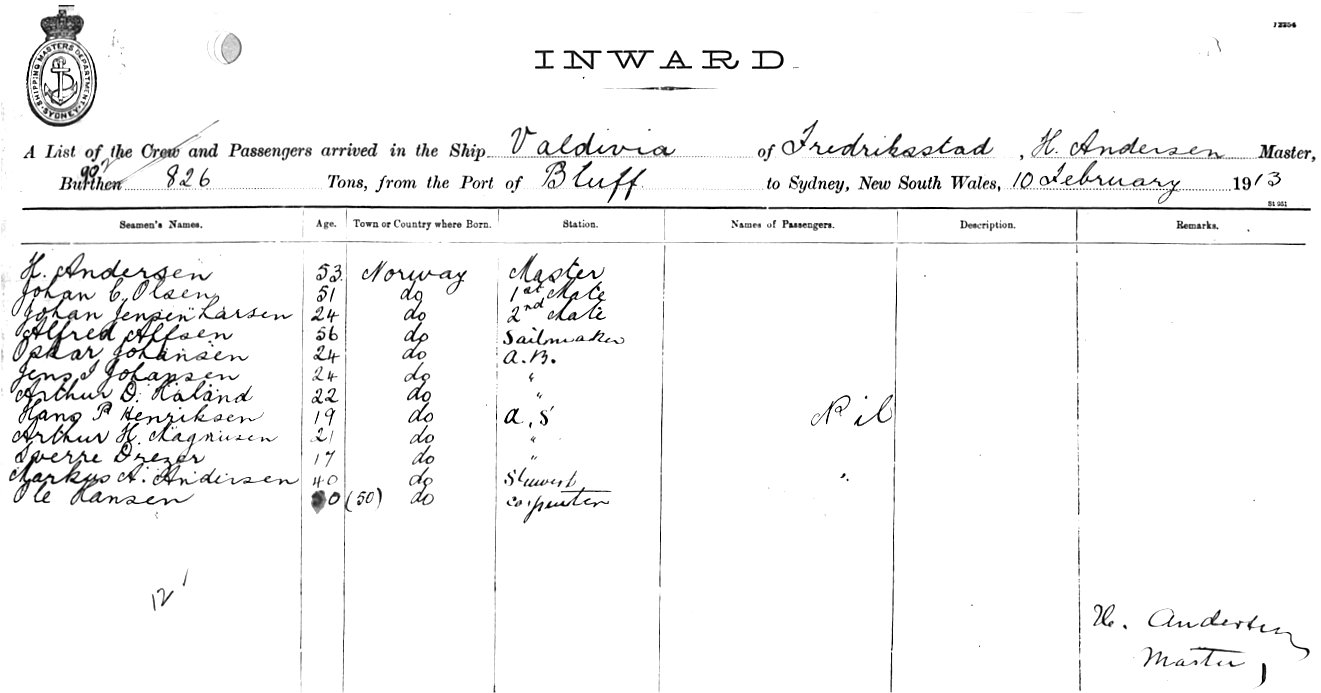 12254
SHIPPING MASTERS DEPARTMENT SYDNEY
INWARD
A List of the Crew and Passengers arrived in the Ship Valdivia of Fredriksstad, H. Andersen Master,
902
Burthen 826 Tons, from the Port of Bluff to Sydney, New South Wales, 10 February 1913
St 951
Seamen's Names. Age. Town or Country where Born. Station. Names of Passengers. Description. Remarks.
H. Andersen 53 Norway Master
Johan C. Olsen 51 do 1st Mate
Johan Jensen Larsen 24 do 2nd Mate
Alfred Alfsen 56 do Sailmaker
Oskar Johansen 24 do A.B.
Jens J Johansen 24 do "
Arthur D. Haland 22 do "
Hans P Henriksen 19 do A.S Nil
Arthur H. Magnusen 21 do "
Sverre Drezer 17 do "
Markus A. Andersen 40 do Stuwert "
Ole Hansen 50 (50) do Carpenter
12
H. Andersen
Master